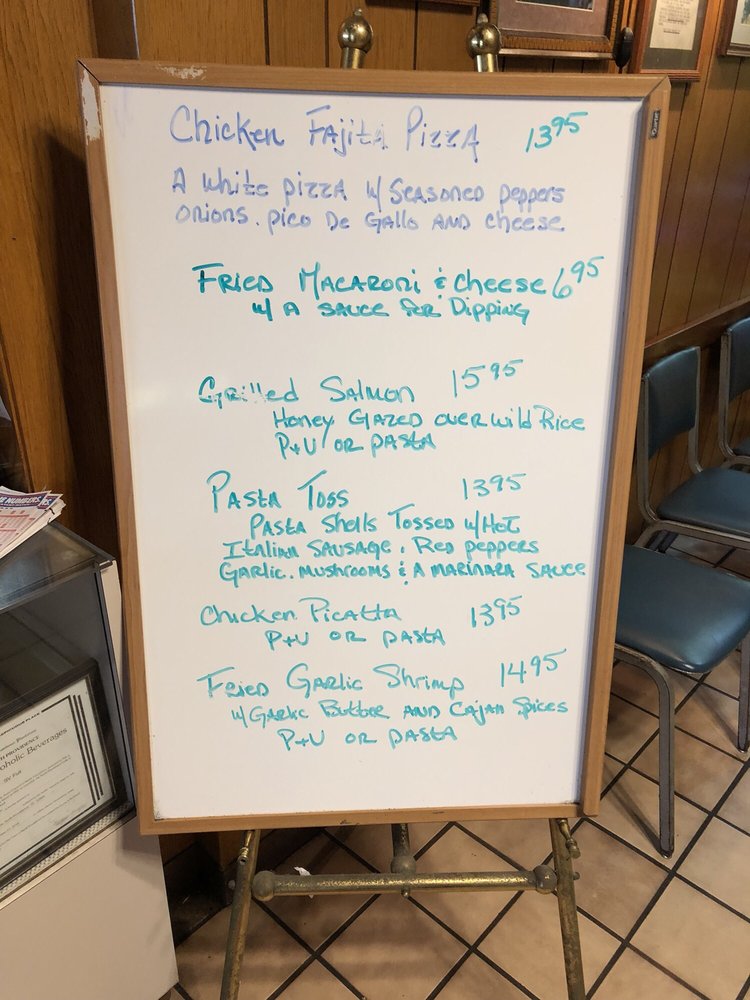 Chicken Fajita Pizza 13 95
A white pizza w/ seasoned peppers
onions. pico De Gallo and cheese
Fried Macaroni & cheese 6 95
w/ a sauce for Dipping
Grilled Salmon 15 95
Honey Gazed over wild Rice
P+V or pasta
Pasta Toss 13 95
Pasta Shells Tossed w/ Hot
Italian Sausage, Red peppers
Garlic. mushrooms & a marinara sauce
Chicken Picatta 13 95
P+V or pasta
Fried Garlic Shrimp 14 95
w/ Garlic Butter and Cajan Spices
P+V or pasta
Quartet
NUMBERS
PROVIDENCE
oholic Beverages